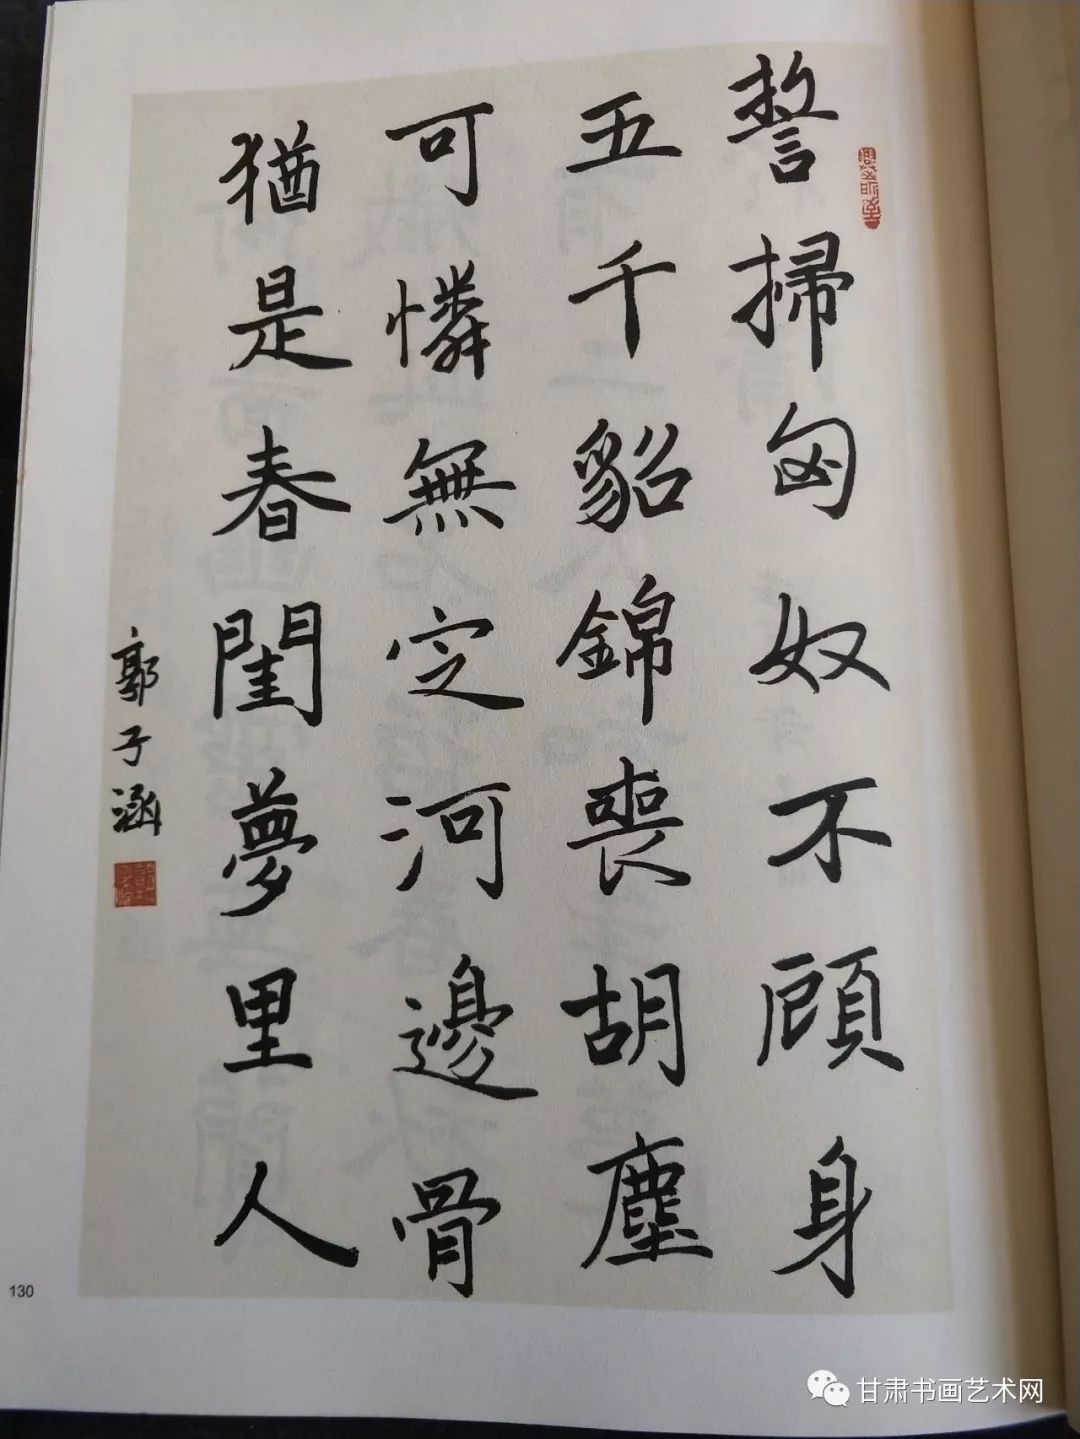 誓掃匈奴不顧身
五千貂錦喪胡塵
可憐無定河邊骨
猶是春閨夢里人
郭子涵
130
甘肃书画艺术网